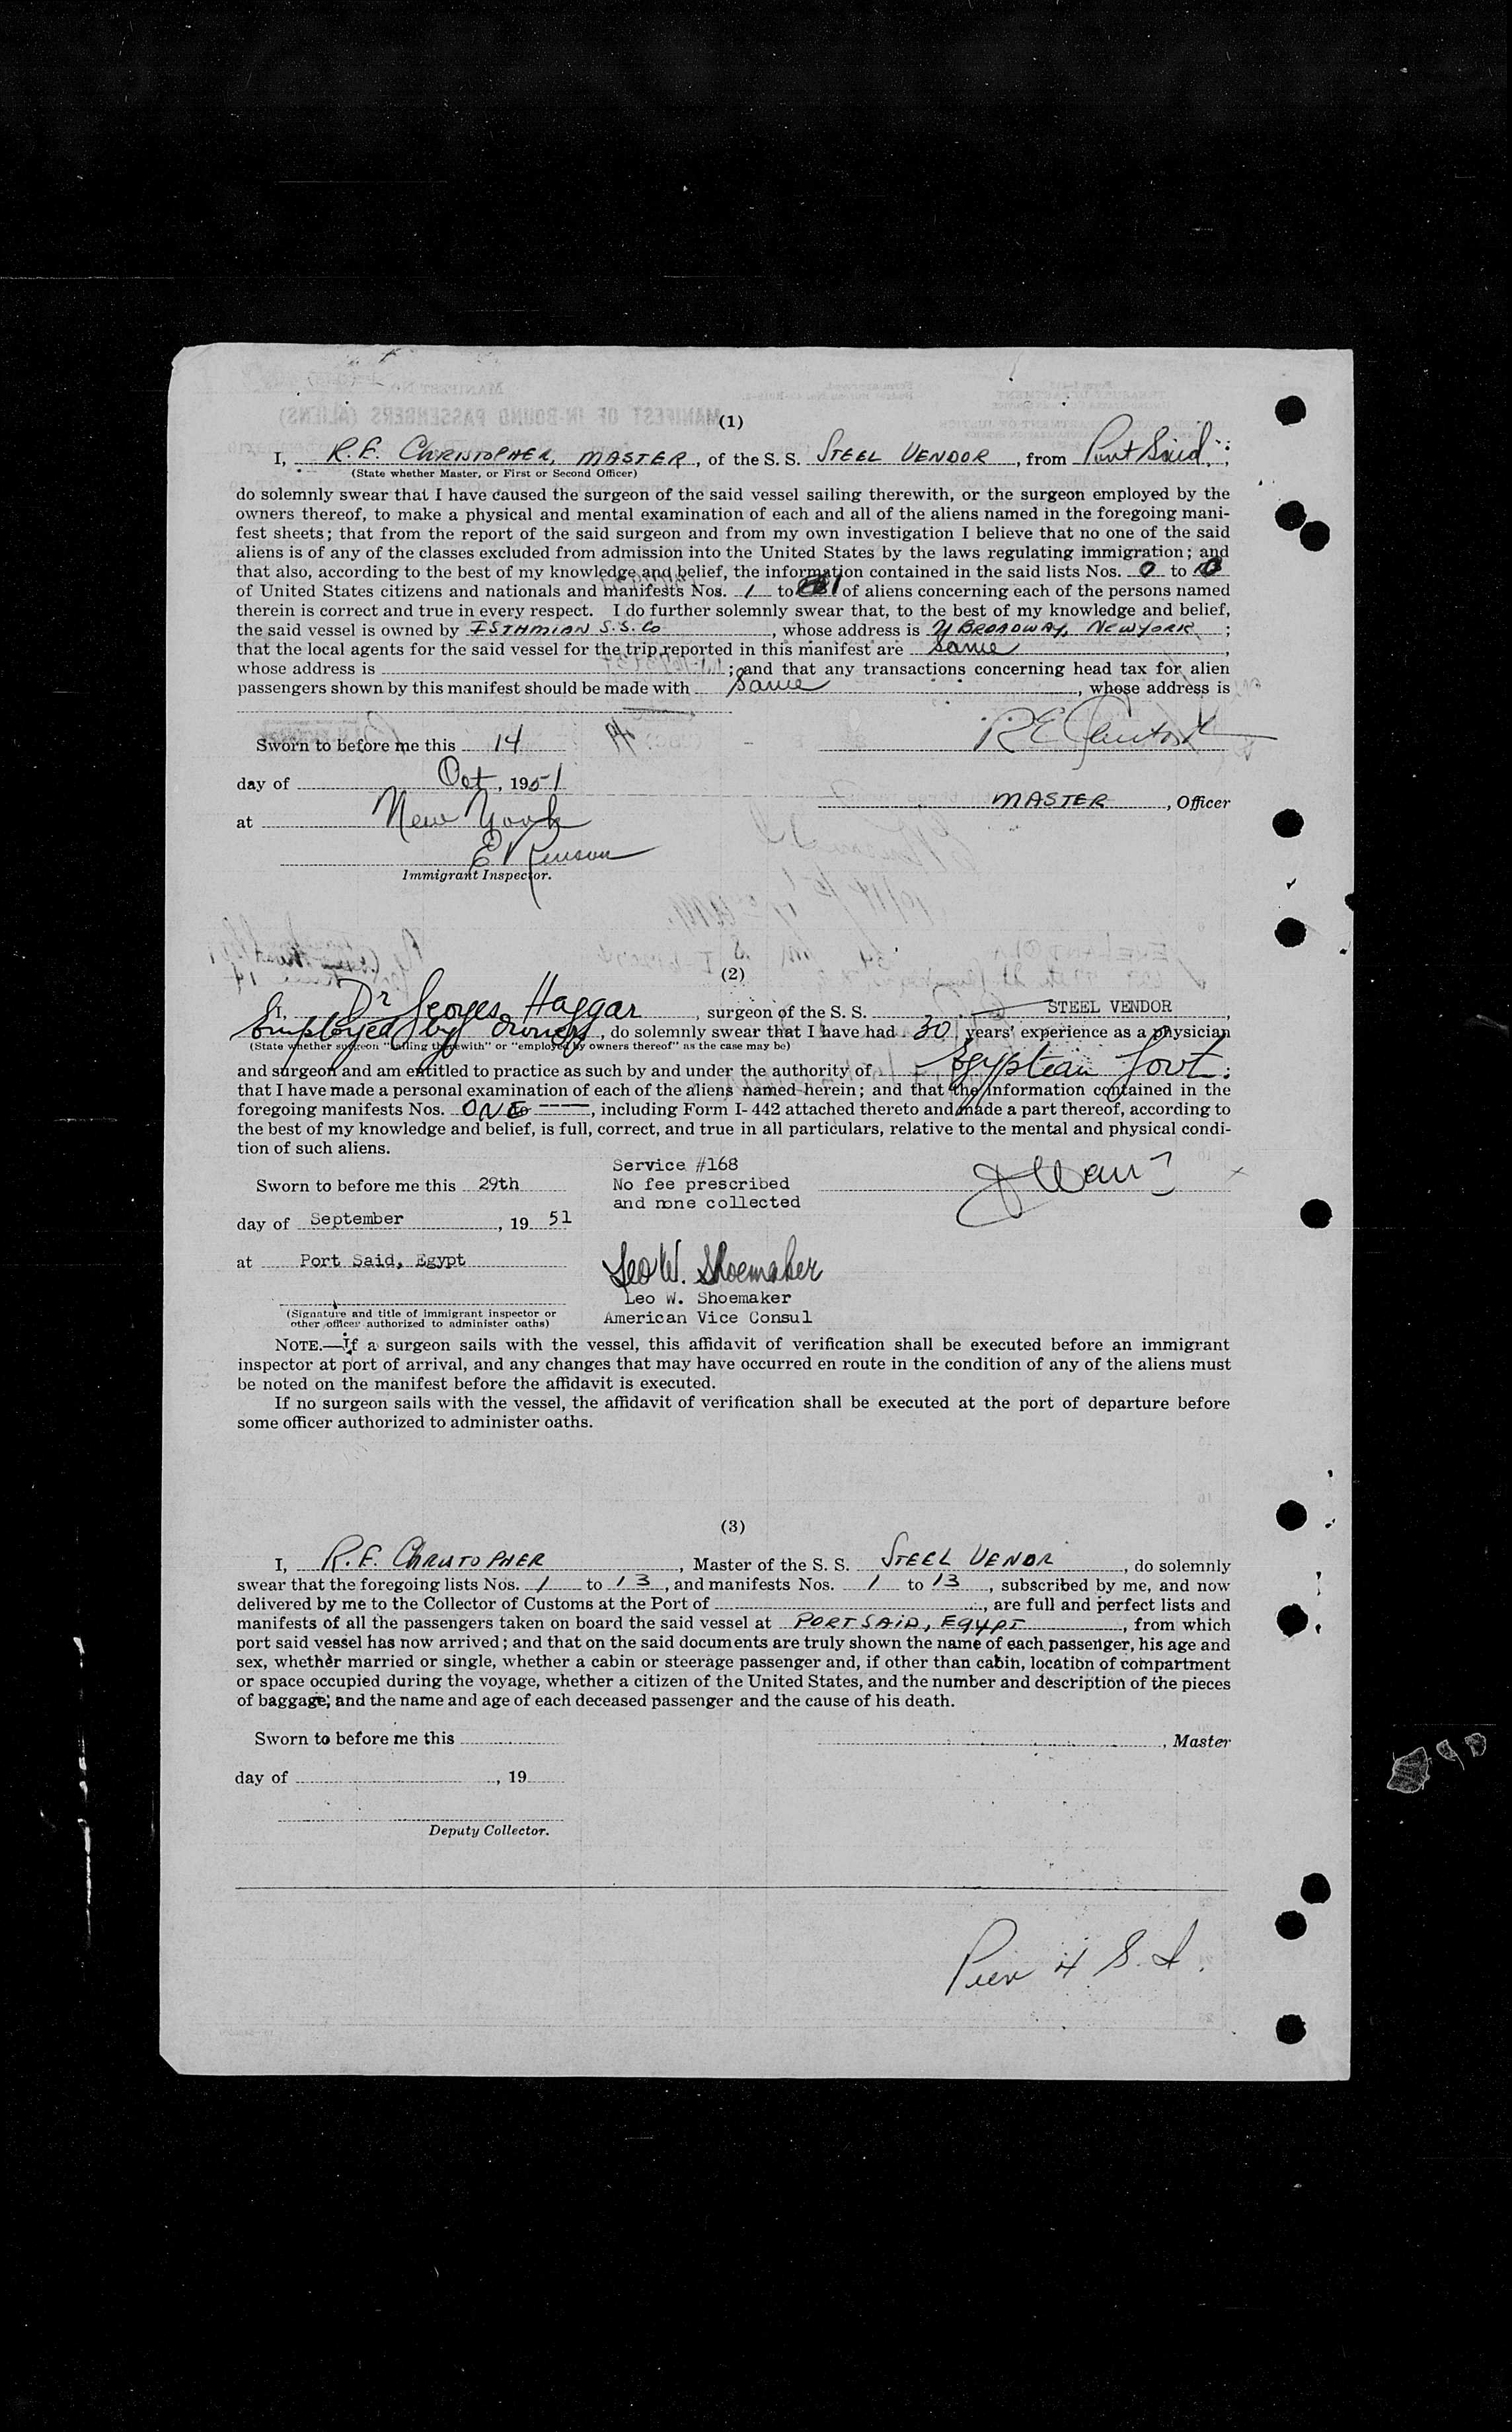 (1)
I, R.E. CHRISTOPHER, MASTER, of the S. S. STEEL VENDOR, from Port Said,;
(State whether Master, or First or Second Officer)
do solemnly swear that I have caused the surgeon of the said vessel sailing therewith, or the surgeon employed by the
owners thereof, to make a physical and mental examination of each and all of the aliens named in the foregoing mani-
fest sheets; that from the report of the said surgeon and from my own investigation I believe that no one of the said
aliens is of any of the classes excluded from admission into the United States by the laws regulating immigration; and
that also, according to the best of my knowledge and belief, the information contained in the said lists Nos. 0 to
of United States citizens and nationals and manifests Nos. 1 to 1 of aliens concerning each of the persons named
therein is correct and true in every respect. I do further solemnly swear that, to the best of my knowledge and belief,
the said vessel is owned by ISTHMIAN S.S. Co, whose address is BROADWAY, NEW YORK;
that the local agents for the said vessel for the trip reported in this manifest are Same,
whose address is ; and that any transactions concerning head tax for alien
passengers shown by this manifest should be made with Same, whose address is
Sworn to before me this 14
day of Oct, 1951
MASTER, Officer
at New York
Immigrant Inspector.
(2)
I, Dr Georges Haggar, surgeon of the S. S. STEEL VENDOR,
Employed by owners, do solemnly swear that I have had 30 years' experience as a physician
(State whether surgeon "sailing therewith" or "employed by owners thereof" as the case may be)
and surgeon and am entitled to practice as such by and under the authority of Egyptian Govt.;
that I have made a personal examination of each of the aliens named herein; and that the information contained in the
foregoing manifests Nos. ONE to ----, including Form I-442 attached thereto and made a part thereof, according to
the best of my knowledge and belief, is full, correct, and true in all particulars, relative to the mental and physical condi-
tion of such aliens.
Service #168
Sworn to before me this 29th
No fee prescribed
and none collected
day of September, 19 51
at Port Said, Egypt
Leo W. Shoemaker
Leo W. Shoemaker
(Signature and title of immigrant inspector or
other officer authorized to administer oaths)
American Vice Consul
NOTE.—If a surgeon sails with the vessel, this affidavit of verification shall be executed before an immigrant
inspector at port of arrival, and any changes that may have occurred en route in the condition of any of the aliens must
be noted on the manifest before the affidavit is executed.
If no surgeon sails with the vessel, the affidavit of verification shall be executed at the port of departure before
some officer authorized to administer oaths.
(3)
I, R.E. CHRISTOPHER, Master of the S. S. STEEL VENDR, do solemnly
swear that the foregoing lists Nos. 1 to 13, and manifests Nos. 1 to 13, subscribed by me, and now
delivered by me to the Collector of Customs at the Port of , are full and perfect lists and
manifests of all the passengers taken on board the said vessel at PORT SAID, EGYPT, from which
port said vessel has now arrived; and that on the said documents are truly shown the name of each passenger, his age and
sex, whether married or single, whether a cabin or steerage passenger and, if other than cabin, location of compartment
or space occupied during the voyage, whether a citizen of the United States, and the number and description of the pieces
of baggage; and the name and age of each deceased passenger and the cause of his death.
Sworn to before me this
, Master
day of , 19
Deputy Collector.
Pier 4 S.I.